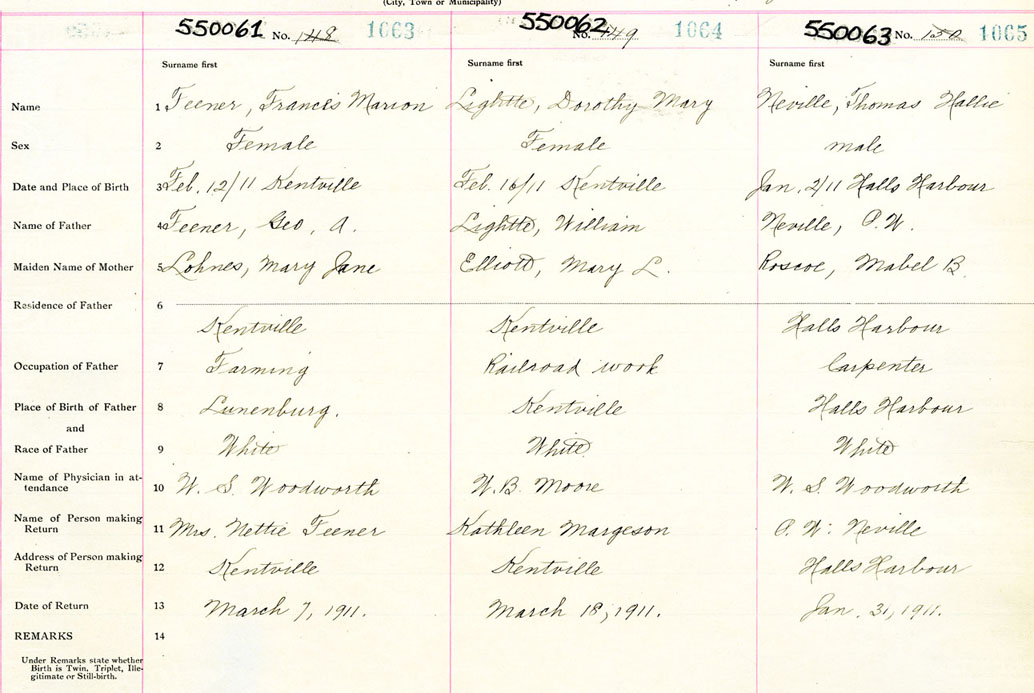 (City, Town or Municipality)
550061 No. 148 1063 550062 No. 149 1064 550063 No. 150 1065
Surname first Surname first Surname first
Name 1 Feener, Francis Marion Lightte, Dorothy Mary Neville, Thomas Hallie
Sex 2 Female Female male
Date and Place of Birth 3 Feb. 12/11 Kentville Feb. 16/11 Kentville Jan. 2/11 Halls Harbour
Name of Father 4 Feener, Geo, A. Lightte, William Neville, P. W.
Maiden Name of Mother 5 Lohnes, Mary Jane Elliott, Mary L. Roscoe, Mabel B
Residence of Father 6
Kentville Kentville Halls Harbour
Occupation of Father 7 Farming Railroad work Carpenter
Place of Birth of Father 8 Lunenburg. Kentville Halls Harbour
and
Race of Father 9 White White White
Name of Physician in at-
tendance 10 W. S. Woodworth W. B. Moore W. S. Woodworth
Name of Person making
Return 11 Mrs. Nettie Feener Kathleen Margeson P. W. Neville
Address of Person making
Return 12 Kentville Kentville Halls Harbour
Date of Return 13 March 7, 1911. March 18, 1911. Jan. 31, 1911.
REMARKS 14
Under Remarks state whether
Birth is Twin, Triplet, Ille-
gitimate or Still-birth.